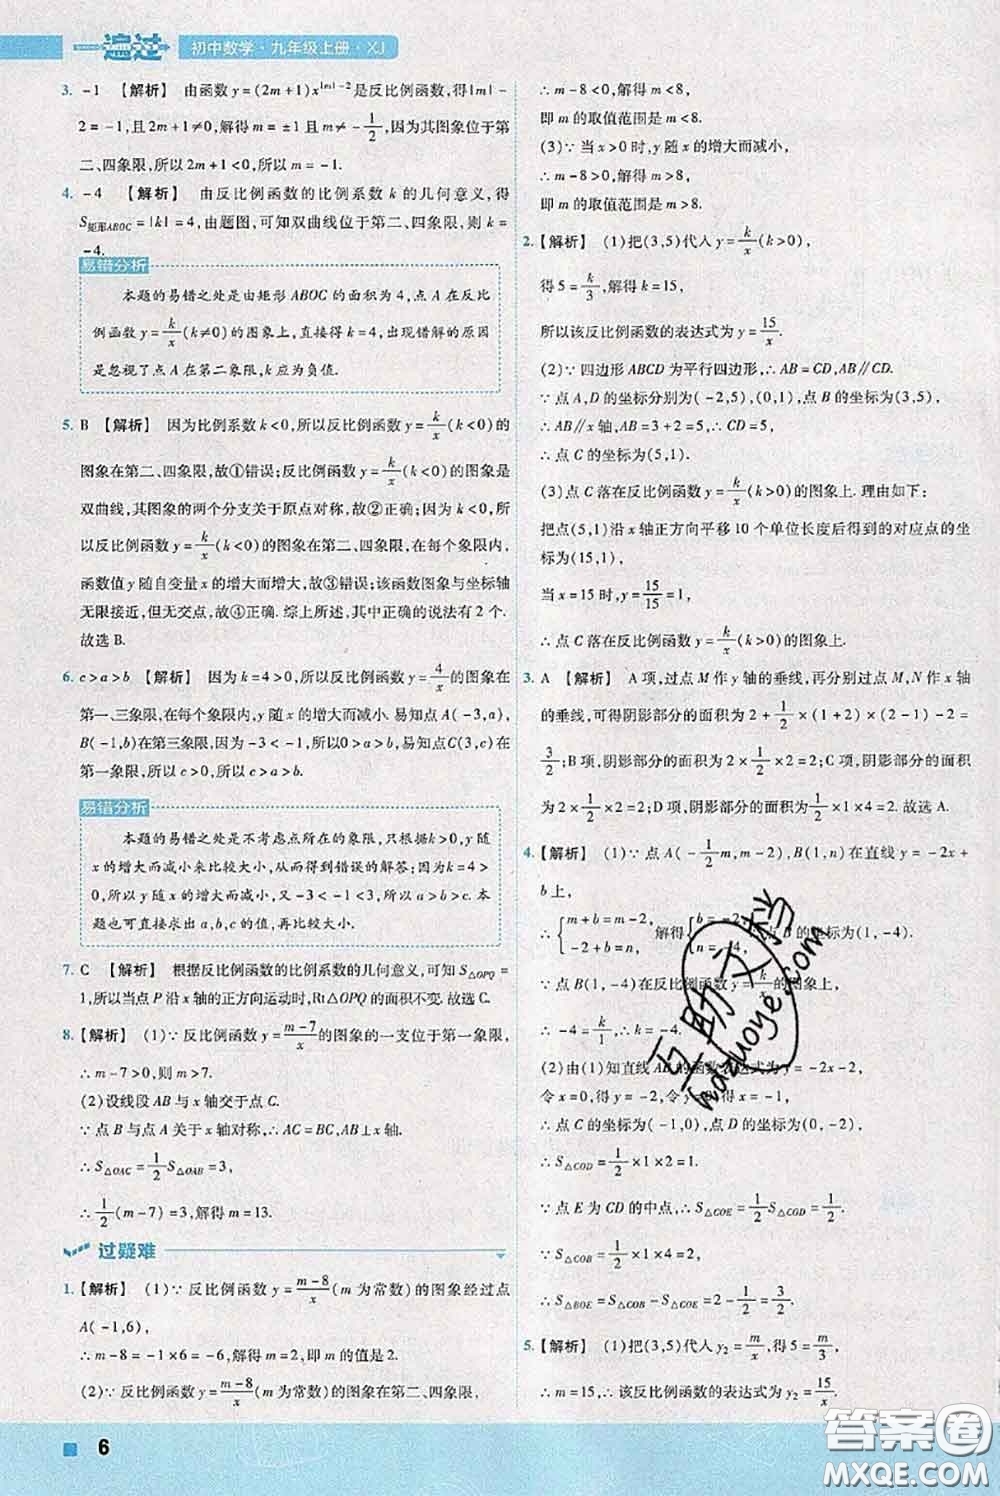 一遍过 初中数学·九年级上册·XJ
3. -1 【解析】 由函数 y=(2m+1)x^{|m|-2}是反比例函数,得|m|-
2=-1,且2m+1≠0,解得 m=±1且 m≠-1/2,因为其图象位于第
二、四象限,所以 2m+1<0,所以 m=-1.
4. -4 【解析】 由反比例函数的比例系数 k 的几何意义,得
S矩形ABOC=|k|=4,由题图,可知双曲线位于第二、四象限,则 k=
-4.
易错分析
本题的易错之处是由矩形 ABOC 的面积为 4,点 A 在反比
例函数 y=k/x(k≠0)的图象上,直接得 k=4,出现错解的原因
是忽视了点 A 在第二象限,k 应为负值.
5. B 【解析】 因为比例系数 k<0,所以反比例函数 y=k/x(k<0)的
图象在第二、四象限,故①错误;反比例函数 y=k/x(k<0)的图象是
双曲线,其图象的两个分支关于原点对称,故②正确;因为 k<0,所
以反比例函数 y=k/x(k<0)的图象在第二、四象限,在每个象限内,
函数值 y 随自变量 x 的增大而增大,故③错误;该函数图象与坐标轴
无限接近,但无交点,故④正确. 综上所述,其中正确的说法有 2 个.
故选 B.
6. c>a>b 【解析】 因为 k=4>0,所以反比例函数 y=4/x的图象在
第一、三象限,在每个象限内,y 随 x 的增大而减小. 易知点 A(-3,a),
B(-1,b)在第三象限,因为 -3<-1,所以0>a>b;易知点C(3,c)在
第一象限,所以 c>0,所以 c>a>b.
易错分析
本题的易错之处是不考虑点所在的象限,只根据k>0,y 随
x 的增大而减小来比较大小,从而得到错误的解答;因为k=4>
0,所以 y 随 x 的增大而减小,又 -3<-1<3,所以 a>b>c. 本
题也可直接求出 a,b,c 的值,再比较大小.
7. C 【解析】 根据反比例函数的比例系数的几何意义,可知 S△OPQ=
1,所以当点 P 沿 x 轴的正方向运动时,Rt△OPQ 的面积不变. 故选 C.
8. 【解析】 (1)∵反比例函数 y=(m-7)/x的图象的一支位于第一象限,
∴m-7>0,即 m>7.
(2)设线段 AB 与 x 轴交于点 C.
∵点 B 与点 A 关于 x 轴对称,∴AC=BC,AB⊥x 轴.
∴S△OAC=1/2S△OAB=3,
∴1/2(m-7)=3,解得 m=13.
过疑难
1. 【解析】 (1)∵反比例函数 y=(m-8)/x(m 为常数)的图象经过点
A(-1,6),
∴m-8=-1×6=-6,解得 m=2,即 m 的值是 2.
(2)∵反比例函数 y=(m-8)/x(m 为常数)的图象在第二、四象限,
6
∴m-8<0,解得 m<8,
即 m 的取值范围是 m<8.
(3)∵当 x>0时,y 随 x 的增大而减小,
∴m-8>0,解得 m>8,
即 m 的取值范围是 m>8.
2. 【解析】 (1)把(3,5)代入 y=k/x(k>0),
得 5=k/3,解得 k=15,
所以该反比例函数的表达式为 y=15/x.
(2)∵四边形 ABCD 为平行四边形,∴AB=CD,AB∥CD.
∵点 A,D 的坐标分别为(-2,5),(0,1),点 B 的坐标为(3,5),
∴AB∥x 轴,AB=3+2=5,∴CD=5,
∴点 C 的坐标为(5,1).
(3)点 C 落在反比例函数 y=k/x(k>0)的图象上. 理由如下:
把点(5,1)沿 x 轴正方向平移 10 个单位长度后得到的对应点的坐
标为(15,1),
当 x=15 时,y=15/15=1,
∴点 C 落在反比例函数 y=k/x(k>0)的图象上.
3. A 【解析】 A 项,过点 M 作 y 轴的垂线,再分别过点 M,N 作 x 轴
的垂线,可得阴影部分的面积为 2+1/2×(1+2)×(2-1)-2=
3/2;B 项,阴影部分的面积为 2×1/2×2=2;C 项,阴影部分的面积
为 2×1/2×2=2;D 项,阴影部分的面积为 1/2×2×4=4. 故选 A.
4. 【解析】 (1)∵点 A(-1/2m,m-2),B(1,n)在直线 y=-2x+
b 上,
∴{m+b=m-2, -2+b=n, 解得{b=-2, n=-4, 点 B 的坐标为(1,-4).
∵点 B(1,-4)在反比例函数 y=k/x的图象上,
∴-4=k/1,∴k=-4.
(2)由(1)知直线 AB 的函数表达式为 y=-2x-2,
令 x=0,得 y=-2,令 y=0,得 x=-1,
∴点 C 的坐标为(-1,0),点 D 的坐标为(0,-2),
∴S△COD=1/2×1×2=1.
∵点 E 为 CD 的中点,∴S△COE=1/2S△COD=1/2,
∵S△COB=1/2×1×4=2,
∴S△BOE=S△COB-S△COE=2-1/2=3/2.
5. 【解析】 (1)把(3,5)代入 y₂=m/x,得 5=m/3,
∴m=15,∴该反比例函数的表达式为 y₂=15/x.
百助文档
hazuoye.com
答案圈
MXQE.COM